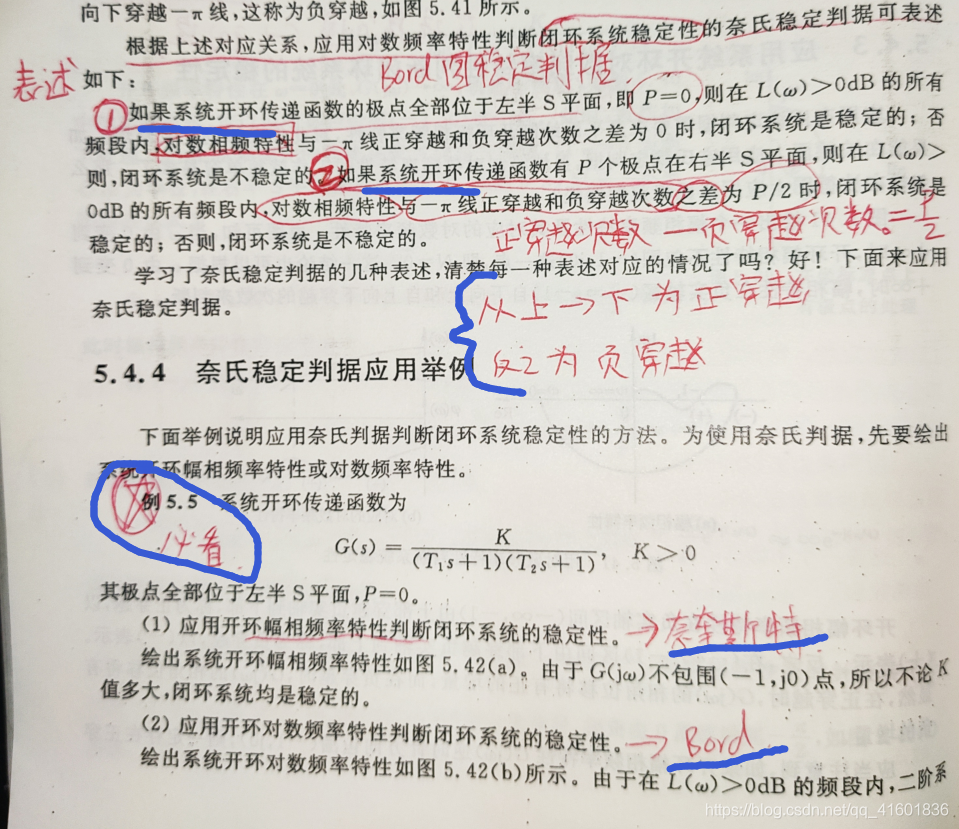 向下穿越-π线,这称为负穿越,如图5.41所示。
根据上述对应关系,应用对数频率特性判断闭环系统稳定性的奈氏稳定判据可表述
表述
如下:
Bord图稳定判据
①如果系统开环传递函数的极点全部位于左半S平面,即P=0,则在L(ω)>0dB的所有
频段内,对数相频特性与-π线正穿越和负穿越次数之差为0时,闭环系统是稳定的;否
则,闭环系统是不稳定的。②如果系统开环传递函数有P个极点在右半S平面,则在L(ω)>
0dB的所有频段内,对数相频特性与-π线正穿越和负穿越次数之差为P/2时,闭环系统是
稳定的;否则,闭环系统是不稳定的。
正穿越次数-负穿越次数=P/2
学习了奈氏稳定判据的几种表述,清楚每一种表述对应的情况了吗?好!下面来应用
奈氏稳定判据。
从上→下为正穿越,
反之为负穿越
5.4.4 奈氏稳定判据应用举例
下面举例说明应用奈氏判据判断闭环系统稳定性的方法。为使用奈氏判据,先要绘出
系统开环幅相频率特性或对数频率特性。
例5.5 系统开环传递函数为
必看
G(s)=K/((T₁s+1)(T₂s+1)), K>0
其极点全部位于左半S平面,P=0。
(1) 应用开环幅相频率特性判断闭环系统的稳定性。→奈奎斯特
绘出系统开环幅相频率特性如图5.42(a)。由于G(jω)不包围(-1,j0)点,所以不论K
值多大,闭环系统均是稳定的。
(2) 应用开环对数频率特性判断闭环系统的稳定性。→Bord
绘出系统开环对数频率特性如图5.42(b)所示。由于在L(ω)>0dB的频段内,二阶系
https://blog.csdn.net/qq_41601836